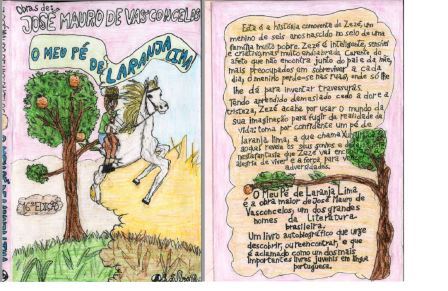 Obras de:
JOSÉ MAURO DE VASCONCELOS
O MEU PÉ DE LARANJA LIMA
EDIÇÃO
Esta é a história comovente de Zezé, um
menino de seis anos nascido no seio de uma
família muito pobre. Zezé é inteligente, sensível
e criativo, mas muito endiabrado. Carente do
afeto que não encontra junto do pai e da mãe,
mais preocupados em sobreviver a cada
dia, o menino perde-se nas ruas, onde só lhe
lhe dá para inventar travessuras.
Tendo aprendido demasiado cedo a dor e a
tristeza, Zezé acaba por usar o mundo da
sua imaginação para fugir da realidade da
vida: toma por confidente um pé de
laranja lima, a que chama
revela os seus sonhos e
que Zezé vai
alegria de viver e a força para
adversidades.
O Meu Pé de Laranja Lima
é a obra maior de José Mauro de
Vasconcelos, um dos grandes
nomes da Literatura
brasileira.
Um livro autobiográfico que urge
descobrir, ou reencontrar, e que
é aclamado como um dos mais
importantes livros juvenis em língua
portuguesa.